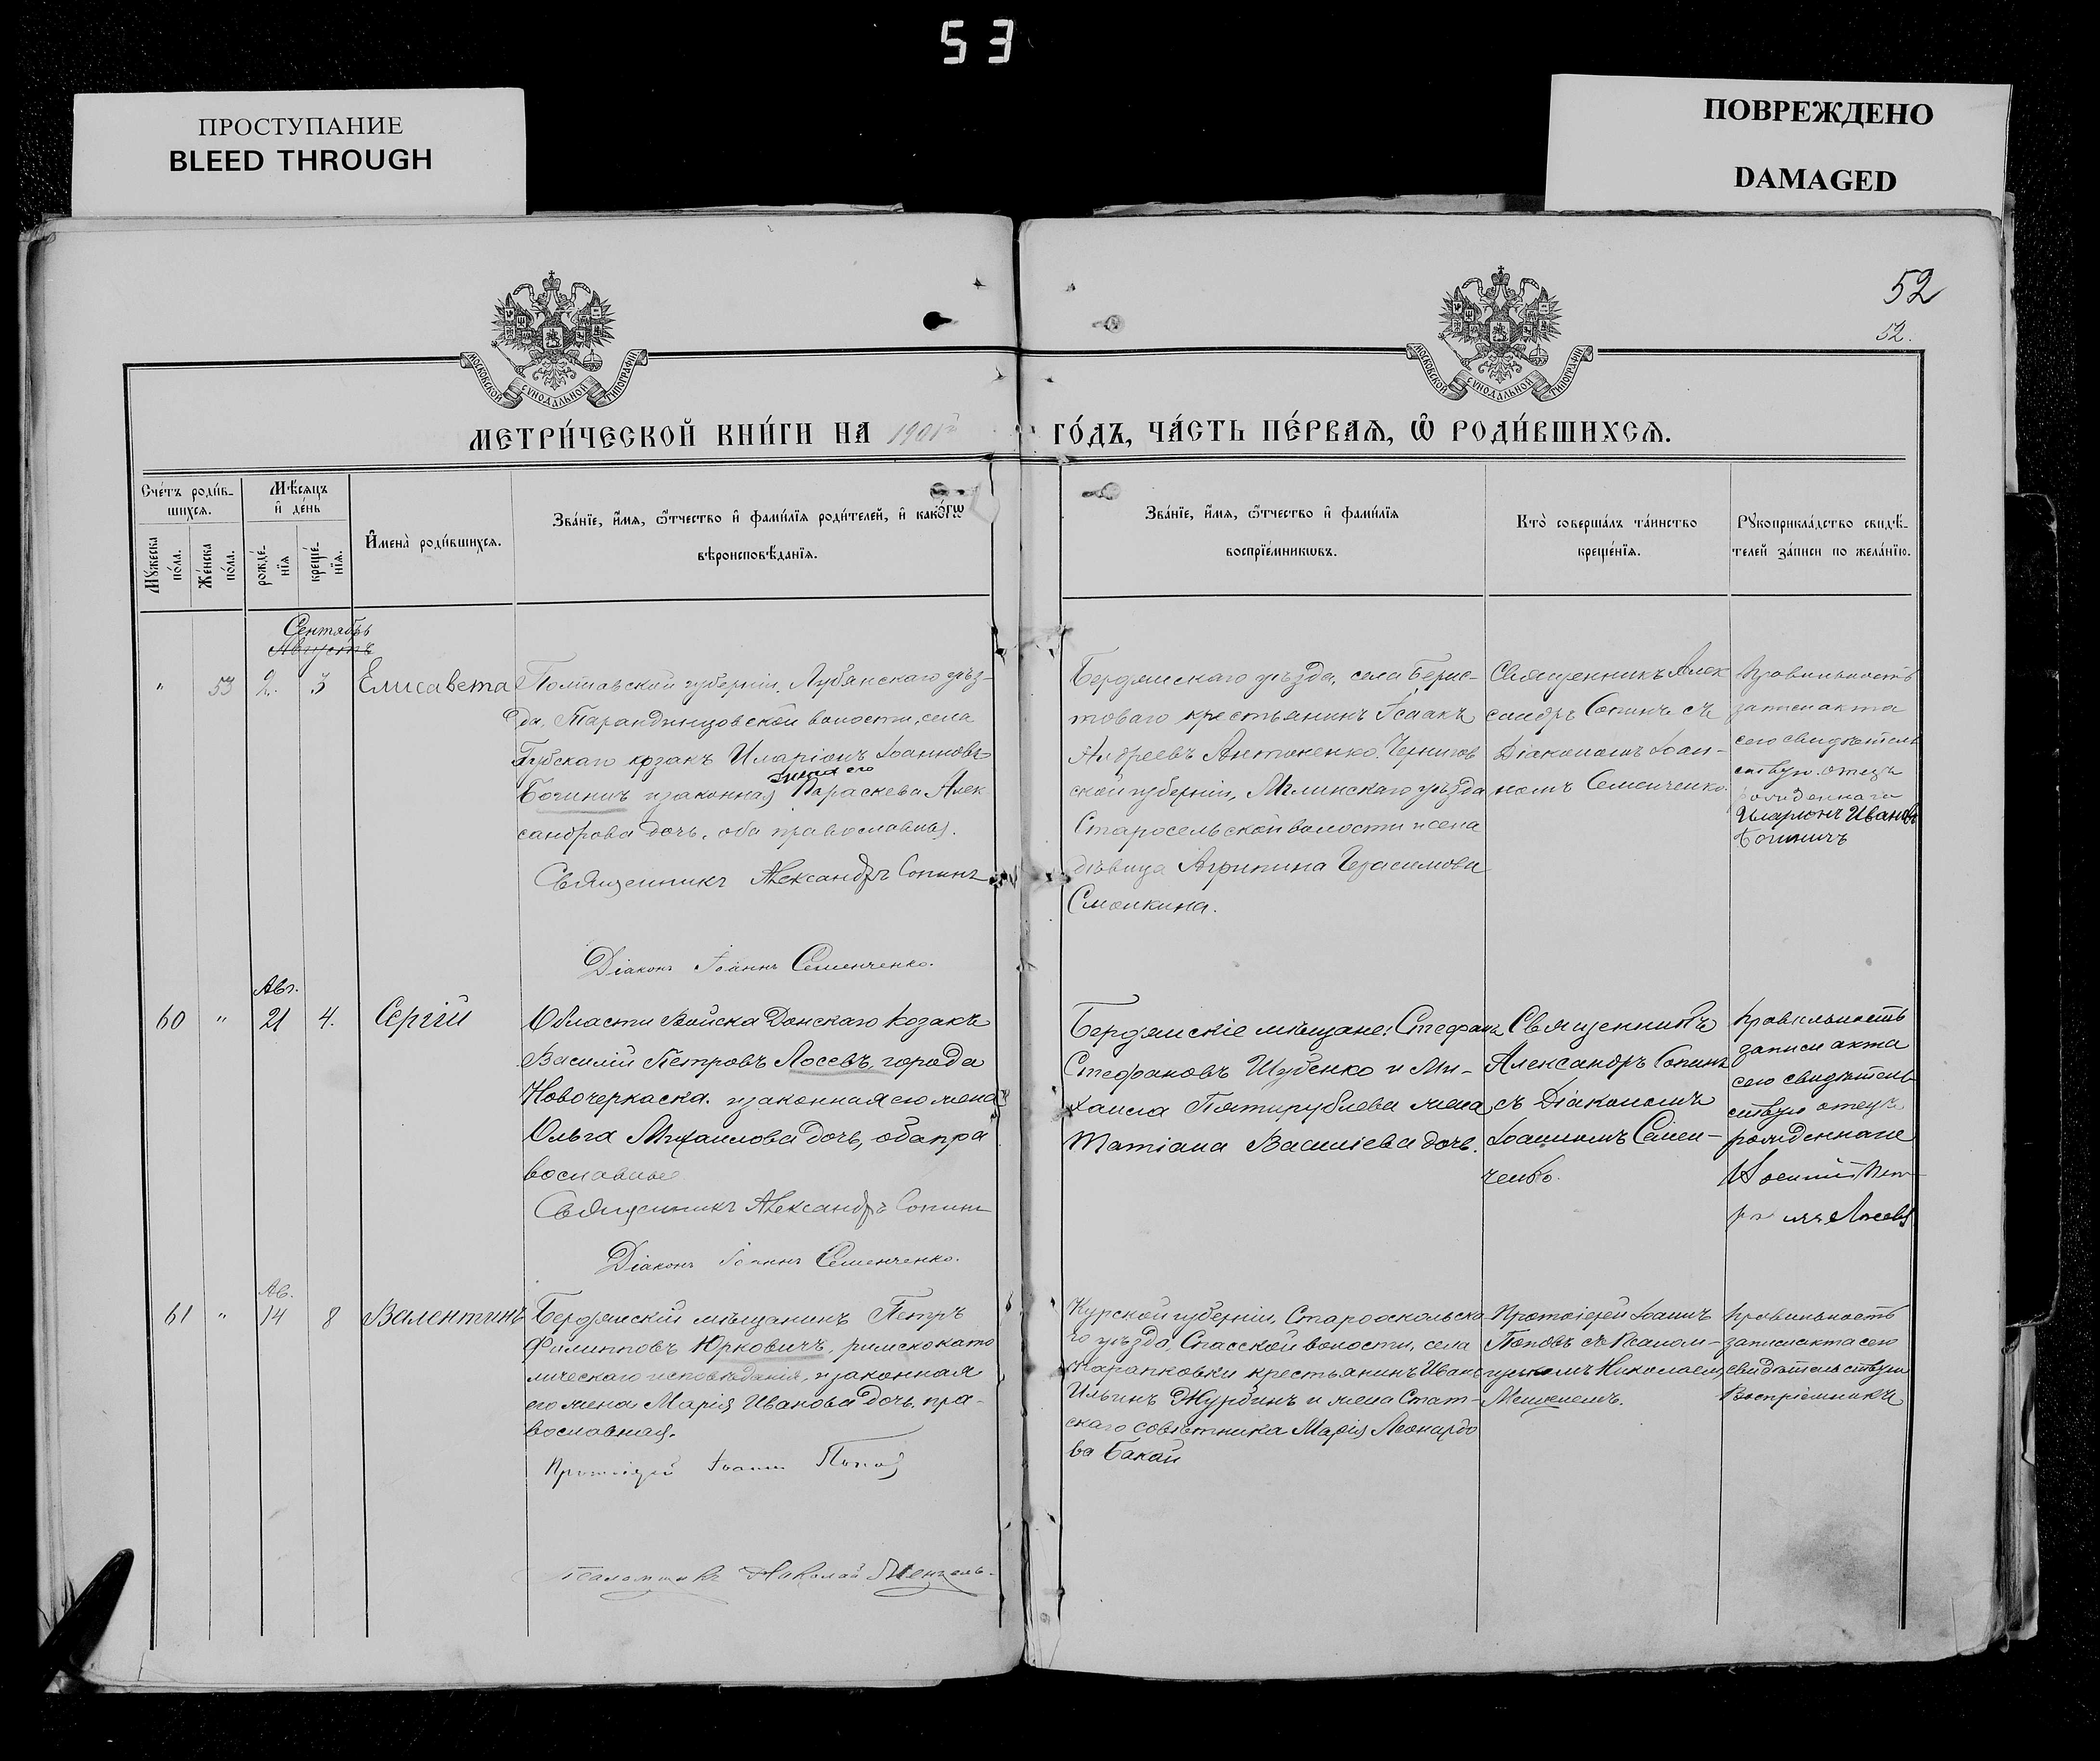 53
ПРОСТУПАНИЕ
BLEED THROUGH
ПОВРЕЖДЕНО
DAMAGED
52
52.
МОСКОВСКОЙ СѴНОДАЛЬНОЙ ТИПОГРАФІИ
МОСКОВСКОЙ СѴНОДАЛЬНОЙ ТИПОГРАФІИ
МЕТРИ́ЧЕСКОЙ КНИ́ГИ НА 1901й
ГО́ДЪ, ЧА́СТЬ ПЕ́РВАѦ, Ѡ РОДИ́ВШИХСѦ.
Сче́тъ роди́в-
шихсѧ.
Мꙋ́жеска
по́ла.
Же́нска
по́ла.
Мѣ́сѧцъ
и҆ де́нь
рожде́-
нїѧ
креще́-
нїѧ.
И҆мена̀ роди́вшихсѧ.
Зва́нїе, и҆́мѧ, ѻ҆́тчество и҆ фами́лїѧ роди́телей, и҆ како́гѡ
вѣроисповѣ́данїѧ.
Зва́нїе, и҆́мѧ, ѻ҆́тчество и҆ фами́лїѧ
воспрїе́мникѡвъ.
Кто̀ соверша́лъ та́инство
креще́нїѧ.
Рꙋкоприкла́дство свидѣ́-
телей за́писи по жела́нїю.
Сентябрь
Августъ
" 53 2. 3 Елисавета
Полтавской губерніи, Лубянскаго уѣз-
да, Тарандинцовской волости, села
Губскаго козакъ Иларіонъ Іоанновъ
Богиничъ и законная жена его Параскева Алек
сандрова дочь, оба православные.
Священникъ Александръ Сопинъ
Діаконъ Іоаннъ Семенченко.
Бердянскаго уѣзда, села Берес-
товаго крестьянинъ Ісаакъ
Андреевъ Антоненко. Чернигов
ской губерніи, Мглинскаго уѣзда
Старосельской волости и села
дѣвица Агрипина Герасимова
Смолкина.
Священникъ Алек
сандръ Сопинъ съ
Діакономъ Іоан-
номъ Семенченко.
Правильность
записи акта
сего свидѣтель
ствую. отецъ
рожденнаго
Иларионъ Иванов
Богиничъ
Авг.
60 " 21 4. Сергій
Области Войска Донскаго Козакъ
Василій Петровъ Лосевъ, города
Новочеркаска. и законная его жена
Ольга Михаилова дочь, оба пра
вославные
Священникъ Александръ Сопинъ
Діаконъ Іоаннъ Семенченко.
Бердянскіе мѣщане: Стефанъ
Стефановъ Шубенко и Ми-
хаила Пятирублева жена
Татіана Василіева дочь.
Священникъ
Александръ Сопинъ
съ Діакономъ
Іоанномъ Семен-
ченко.
Правильность
записи акта
сего свидѣтель
ствую отецъ
рожденнаго
Василий Пет
Лосевъ
Ав.
61 " 14 8 Валентинъ
Бердянский мѣщанинъ Петръ
Филипповъ Юрковичъ, римскокато
лическаго исповѣданія, и законная
его жена Марія Иванова дочь, пра-
вославная.
Протоіерей Іоаннъ Поповъ
Псаломщикъ Николай Менжель
Курской губерніи, Старооскольска
го уѣзда, Спасской волости, села
крестьянинъ Иванъ
Ильинъ Журбинъ и жена Стат-
скаго совѣтника Марія Леонардо
ва Бакай
Протоіерей Іоаннъ
Поповъ съ Псалом-
щикомъ Николаемъ
Менжелемъ.
Правильность
записи акта сего
свидѣтельствую
Воспріемникъ